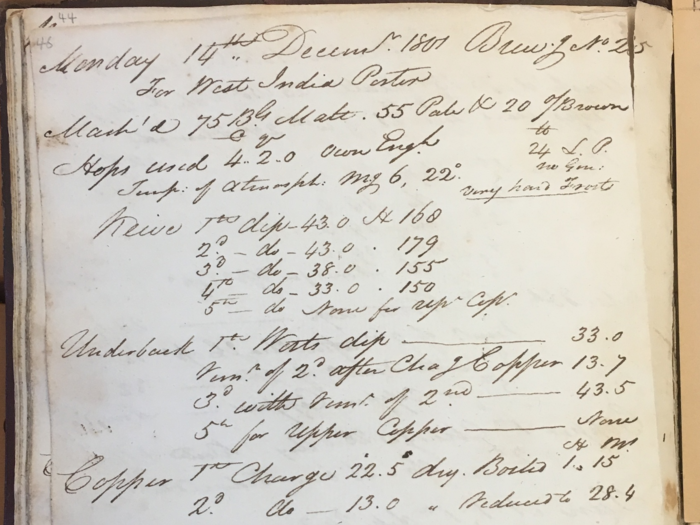 44
46
Monday 14th Decemr. 1801 Brewg No. 25
For West India Porter
Mash'd 75 BG Malt. 55 Pale & 20 of Brown
C qr to
Hops used 4. 2. 0 own Engh. 24 L. P.
no Gen:
Temp: of Atmosph: Mg 6, 22° very hard Frost
Keive 1st dip - 43.0 H 168
2d. - do - 43.0 . 179
3d. - do - 38.0 . 155
4th - do - 33.0 . 150
5th - do None for upr. Copr.
Underback 1st. Worts dip 33.0
Remr. of 2d after Chag Copper 13.7
3d. with remr. of 2nd 43.5
5th for upper Copper None
H Ms
Copper 1st Charge 22.5 dry. Boiled 1. 15
2d. do - 13.0 " reduced to 28.4